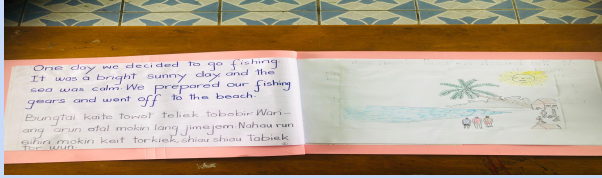 One day we decided to go fishing
It was a bright sunny day and the
sea was calm. We prepared our fishing
gears and went off to the beach.
Bungtai kaite towot teliek tobebir Wan-
ang arun atal mokin lang jimejem Nahau run
eihin mokin keit torkiek, shiau shiau Tabiek
Tor wun